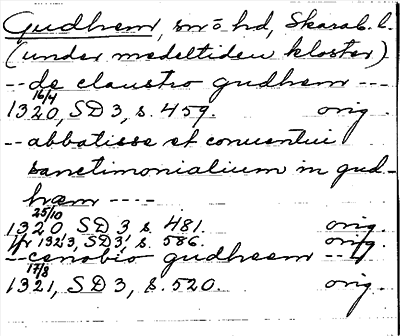 Gudhem, sn o hd, Skarab. l.
(under medeltiden kloster)
-- de claustro gudhem ---
16/4
1320, SD 3, s. 459. orig.
-- abbatisse et conuentui
sanctimonialium in gud-
hæm ----
25/10
1320, SD 3, s. 481. orig.
jfr 1323, SD 3, s. 586. orig.
-- cenobio gudheem ---
17/8
1321, SD 3, s. 520. orig.